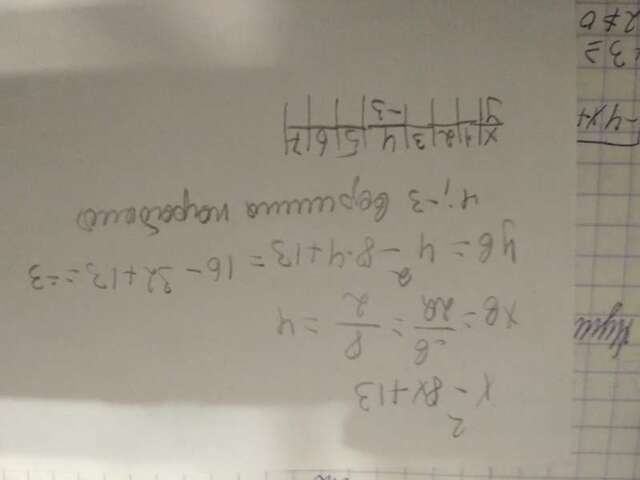 x² - 8x + 13
xв = -в/2a = 8/2 = 4
yв = 4² - 8·4 + 13 = 16 - 32 + 13 = -3
4; -3 вершина параболы
x | 1 | 2 | 3 | 4 | 5 | 6 | 7
y | | | | -3 | | |
-4x+
3 =
2 ≠ 0